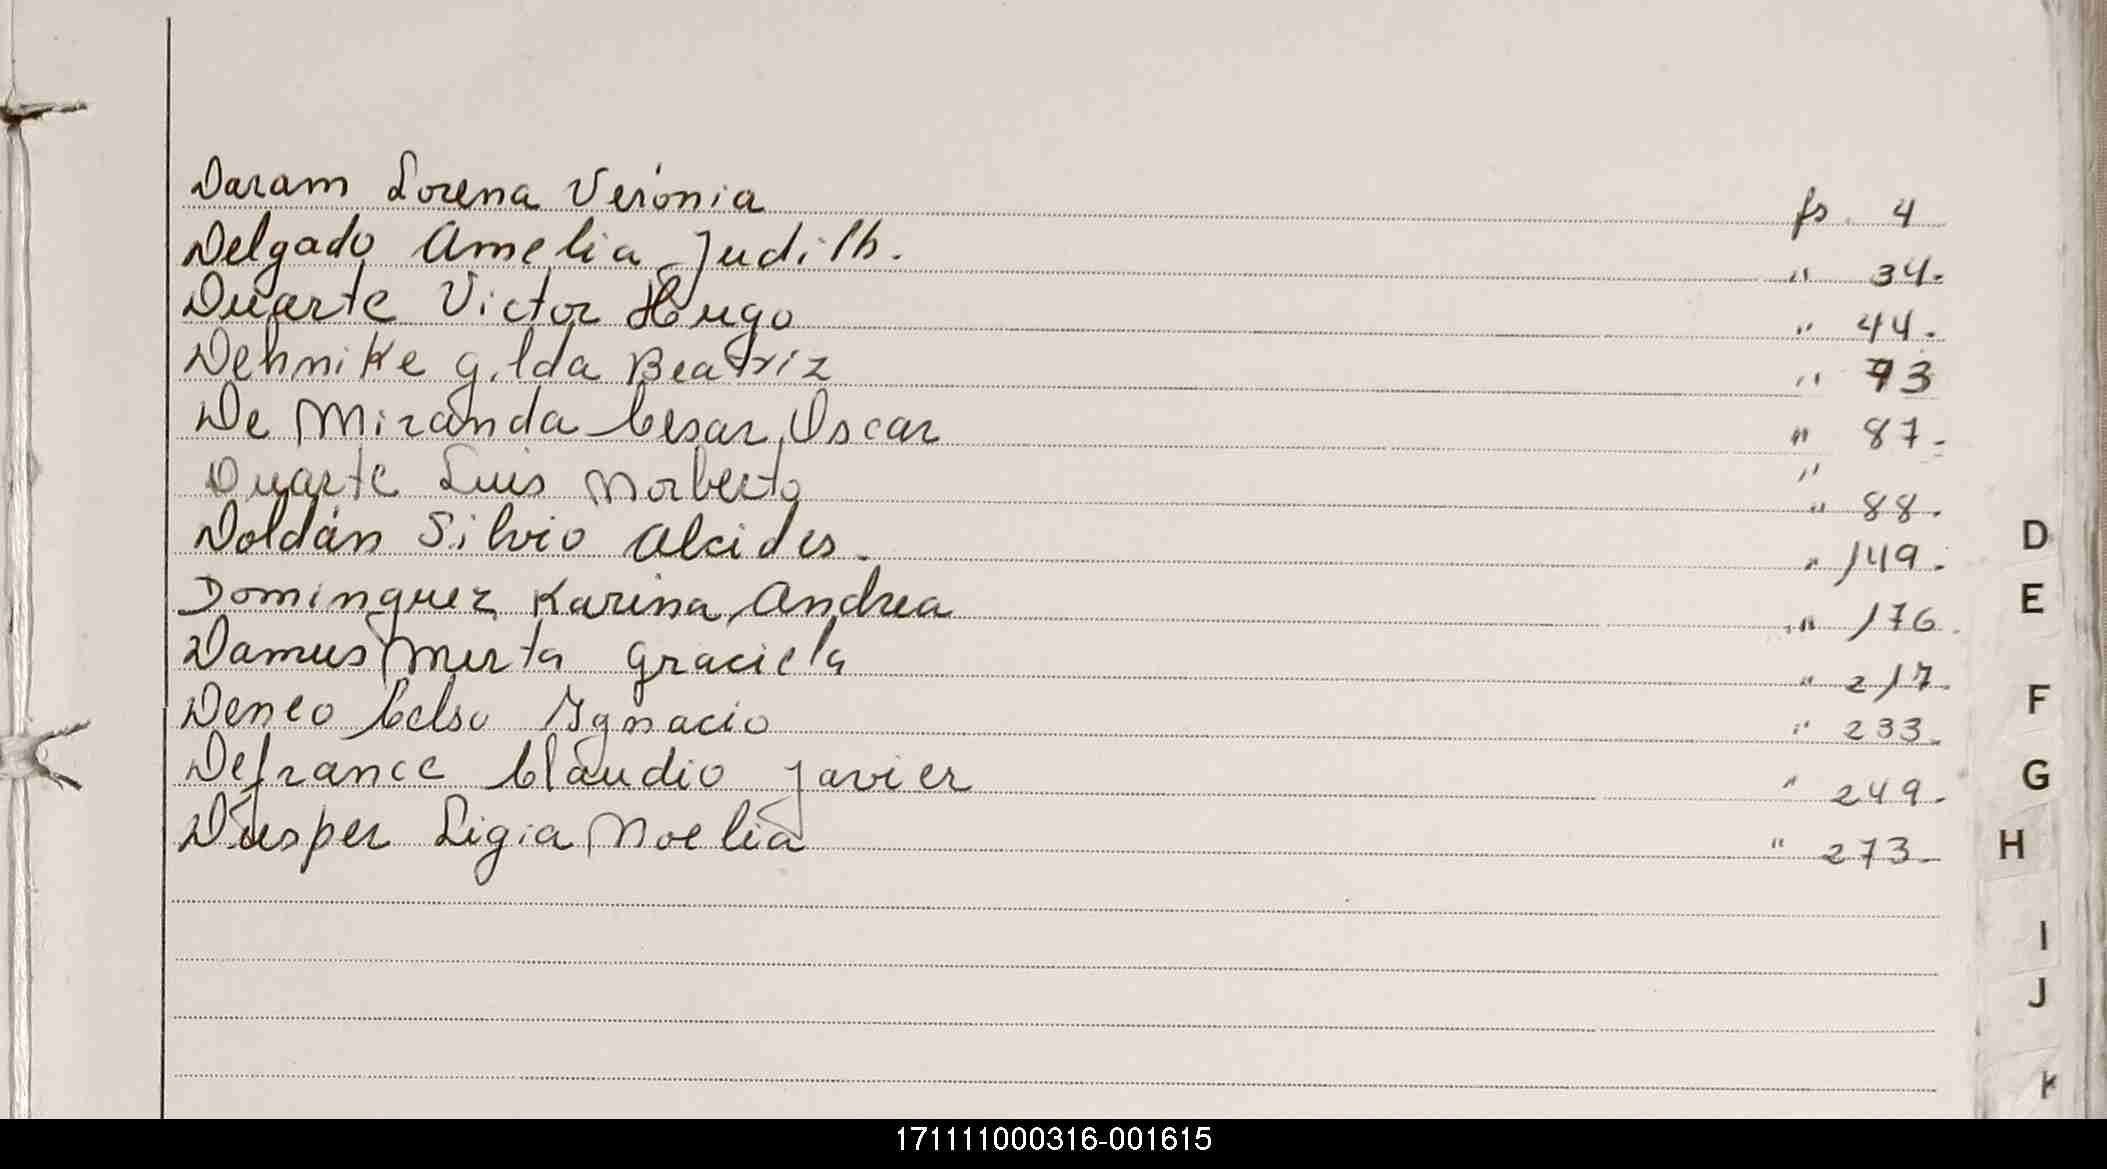 Daram Lorena Verónia fs. 4
Delgado Amelia Judith. " 34-
Duarte Victor Hugo " 44-
Dehmike Gilda Beatriz " 73
De Miranda Cesar Oscar " 87-
Duarte Luis Norberto " 88-
Doldán Silvio Alcides. " 149-
Dominguez Karina Andrea " 176.
Damus Mirta Graciela " 217-
Deneo Celso Ygnacio " 233-
Defrance Claudio Javier " 249-
Ligia Noelia " 273-
D
E
F
G
H
I
J
K
171111000316-001615